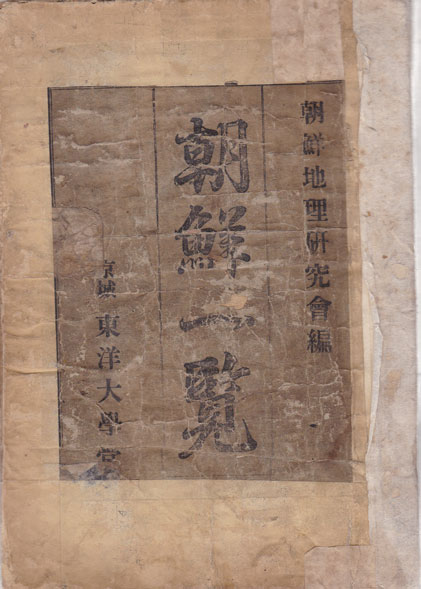 朝鮮地理研究會編
朝鮮一覧
京城 東洋大學堂